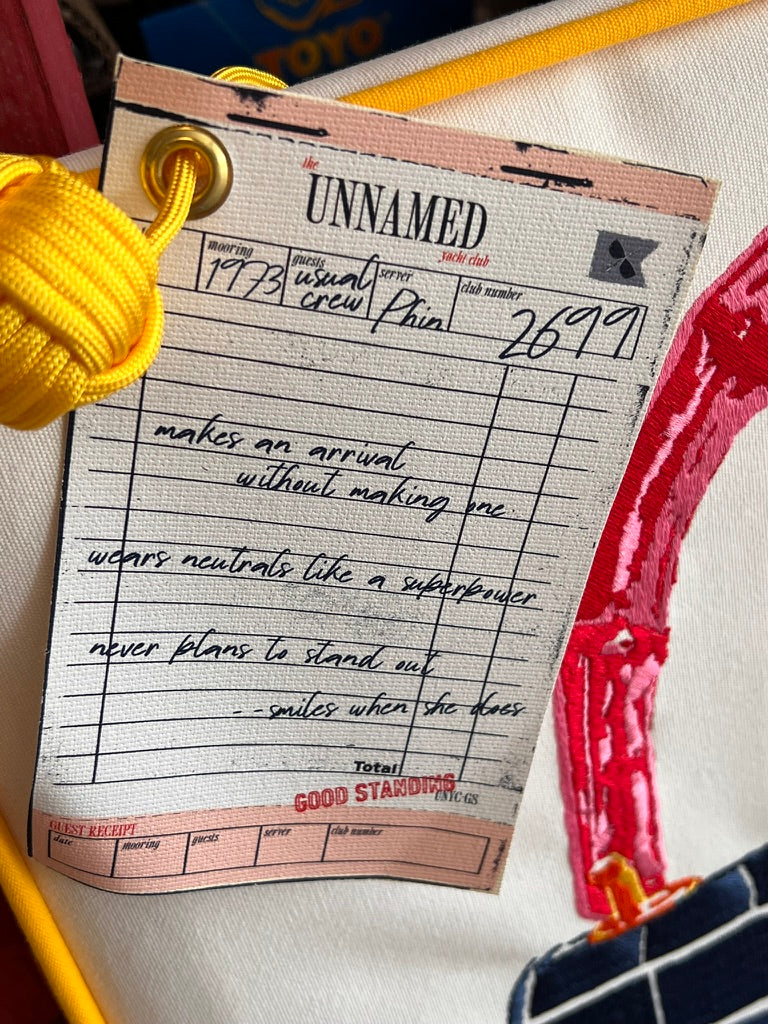 TOYO
the
UNNAMED
yacht club
mooring guests server club number
1973 usual crew Phin 2699
makes an arrival
without making one
wears neutrals like a superpower
never plans to stand out
--smiles when she does
Total
GOOD STANDING
UNYC-GS
GUEST RECEIPT
date mooring guests server club number